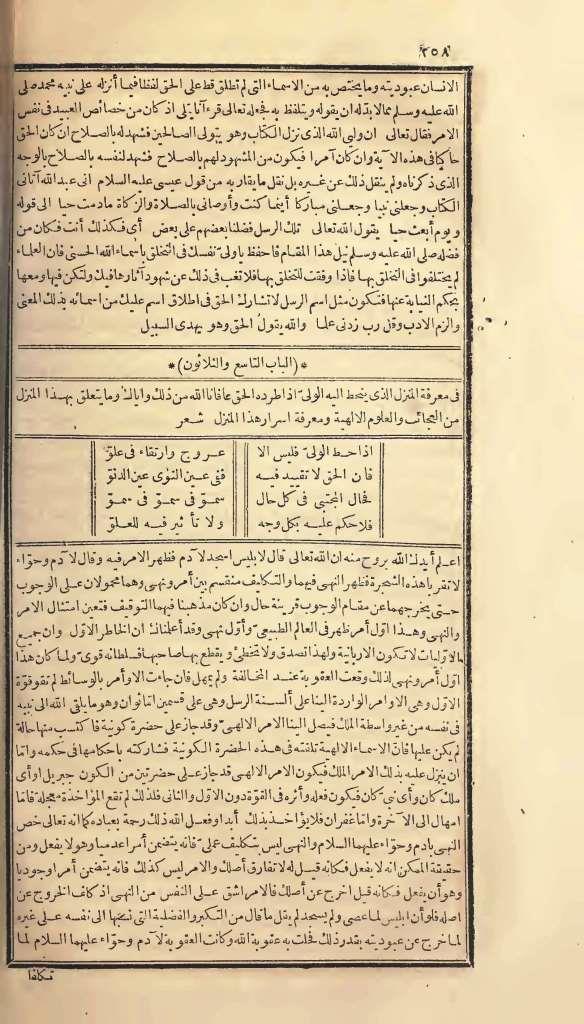 ٢٥٨
الانسان عبوديته وما يختص به من الاسماء التي لم تطلق قط على الحق لفظا فيما أنزله على نبيه محمد صلى
الله عليه وسلم مما لابد له أن يقوله ويتلفظ به فجعله تعالى قرءآنا يتلى اذ كان من خصائص العبيد في نفس
الامر فقال تعالى ان وليي الله الذي نزل الكتاب وهو يتولى الصالحين فشهد له بالصلاح ان كان الحق
حاكيا في هذه الآية وان كان آمرا فيكون من المشهود لهم بالصلاح فشهد لنفسه بالصلاح بالوجه
الذي ذكرناه ولم ينقل ذلك عن غيره بل نقل ما يقاربه من قول عيسى عليه السلام انى عبد الله آتانى
الكتاب وجعلنى نبيا وجعلنى مباركا أينما كنت وأوصانى بالصلاة والزكاة مادمت حيا الى قوله
ويوم أبعث حيا يقول الله تعالى تلك الرسل فضلنا بعضهم على بعض أى فكذلك أنت فكان من
فضله صلى الله عليه وسلم نيل هذا المقام فاحفظ ياولىّ نفسك فى التخلق بأسماء الله الحسنى فان العلماء
لم يختلفوا فى التخلق بها فاذا وفقت للتخلق بها فلا تغب فى ذلك عن شهود آثارها فيك ولتكن فيها ومعها
بحكم النيابة عنها فتكون مثل اسم الرسل لا تشارك الحق فى اطلاق اسم عليك من اسمائه بذلك المعنى
والزم الادب وقل رب زدنى علما والله يقول الحق وهو يهدى السبيل
*(الباب التاسع والثلاثون)*
فى معرفة المنزل الذى ينحط اليه الولىّ اذا طرده الحق عافانا الله من ذلك واياك وما يتعلق بهذا المنزل
من العجائب والعلوم الالهية ومعرفة اسرار هذا المنزل شعر
اذا حط الولىّ فليس الا عروج وارتقاء فى علوّ
فان الحق لا تقييد فيه ففى عين النوى عين الدنوّ
فحال المجتبى فى كل حال سموّ فى سموّ فى سموّ
فلا حكم عليه بكل وجه ولا تأثير فيه للعلوّ
اعلم أيدك الله بروح منه ان الله تعالى قال لابليس اسجد لآدم فظهر الامر فيه وقال لآدم وحوّاء
لا تقربا هذه الشجرة فظهر النهى فيهما والتكليف منقسم بين أمر ونهى وهما محمولان على الوجوب
حتى يخرجهما عن مقام الوجوب قرينة حال وان كان مذهبنا فيهما التوقيف فتعين امتثال الامر
والنهى وهذا اوّل أمر ظهر فى العالم الطبيعىّ وأوّل نهى وقد أعلمناك ان الخاطر الاوّل وان جميع
الاوليات لا تكون الا ربانية ولهذا تصدق ولا تخطئ ويقطع بها صاحبها فسلطانه قوىّ ولما كان هذا
اوّل أمر ونهى لذلك وقعت العقوبة عند المخالفة ولم يمهل فان جاءت الاوامر بالوسائط لم تقو قوّة
الاوّل وهى الاوامر الواردة الينا على ألسنة الرسل وهى على قسمين اما ثوان وهو ما يلقى الله الى نبيه
فى نفسه من غير واسطة الملك فيصل الينا الامر الالهىّ وقد جاز على حضرة كونية فاكتسب منها حالة
لم يكن عليها فانّ الاسماء الالهية تلقته فى هذه الحضرة الكونية فشاركته بأحكامها فى حكمه وامّا
ان ينزل عليه بذلك الامر الملك فيكون الامر الالهى قد جاز على حضرتين من الكون جبريل اوأى
ملك كان وأى نبىّ كان فيكون فعله وأثره فى القوّة دون الاوّل والثانى فلذلك لم تقع المؤاخذة معجلة فامّا
امهال الى الآخرة وامّا غفران فلا يؤاخذ بذلك أبدا وفعل الله ذلك رحمة بعباده كما انه تعالى خص
النهى بآدم وحوّاء عليهما السلام والنهى ليس بتكليف عملىّ فانه يتضمن أمرا عدميا وهو لا يفعل ومن
حقيقة الممكن انه لا يفعل فكانه قيل له لا تفارق أصلك والامر ليس كذلك فانه يتضمن أمرا وجوديا
وهو أن يفعل فكانه قيل اخرج عن أصلك فالامر اشق على النفس من النهى اذ كلف الخروج عن
اصله فلو أن ابليس لما عصى ولم يسجد لم يقل ما قال من التكبر والفضلية التى نسبها الى نفسه على غيره
لما خرج عن عبوديته بقدر ذلك فحلت به عقوبة الله وكانت العقوبة لآدم وحوّاء عليهما السلام لما
تكلفا